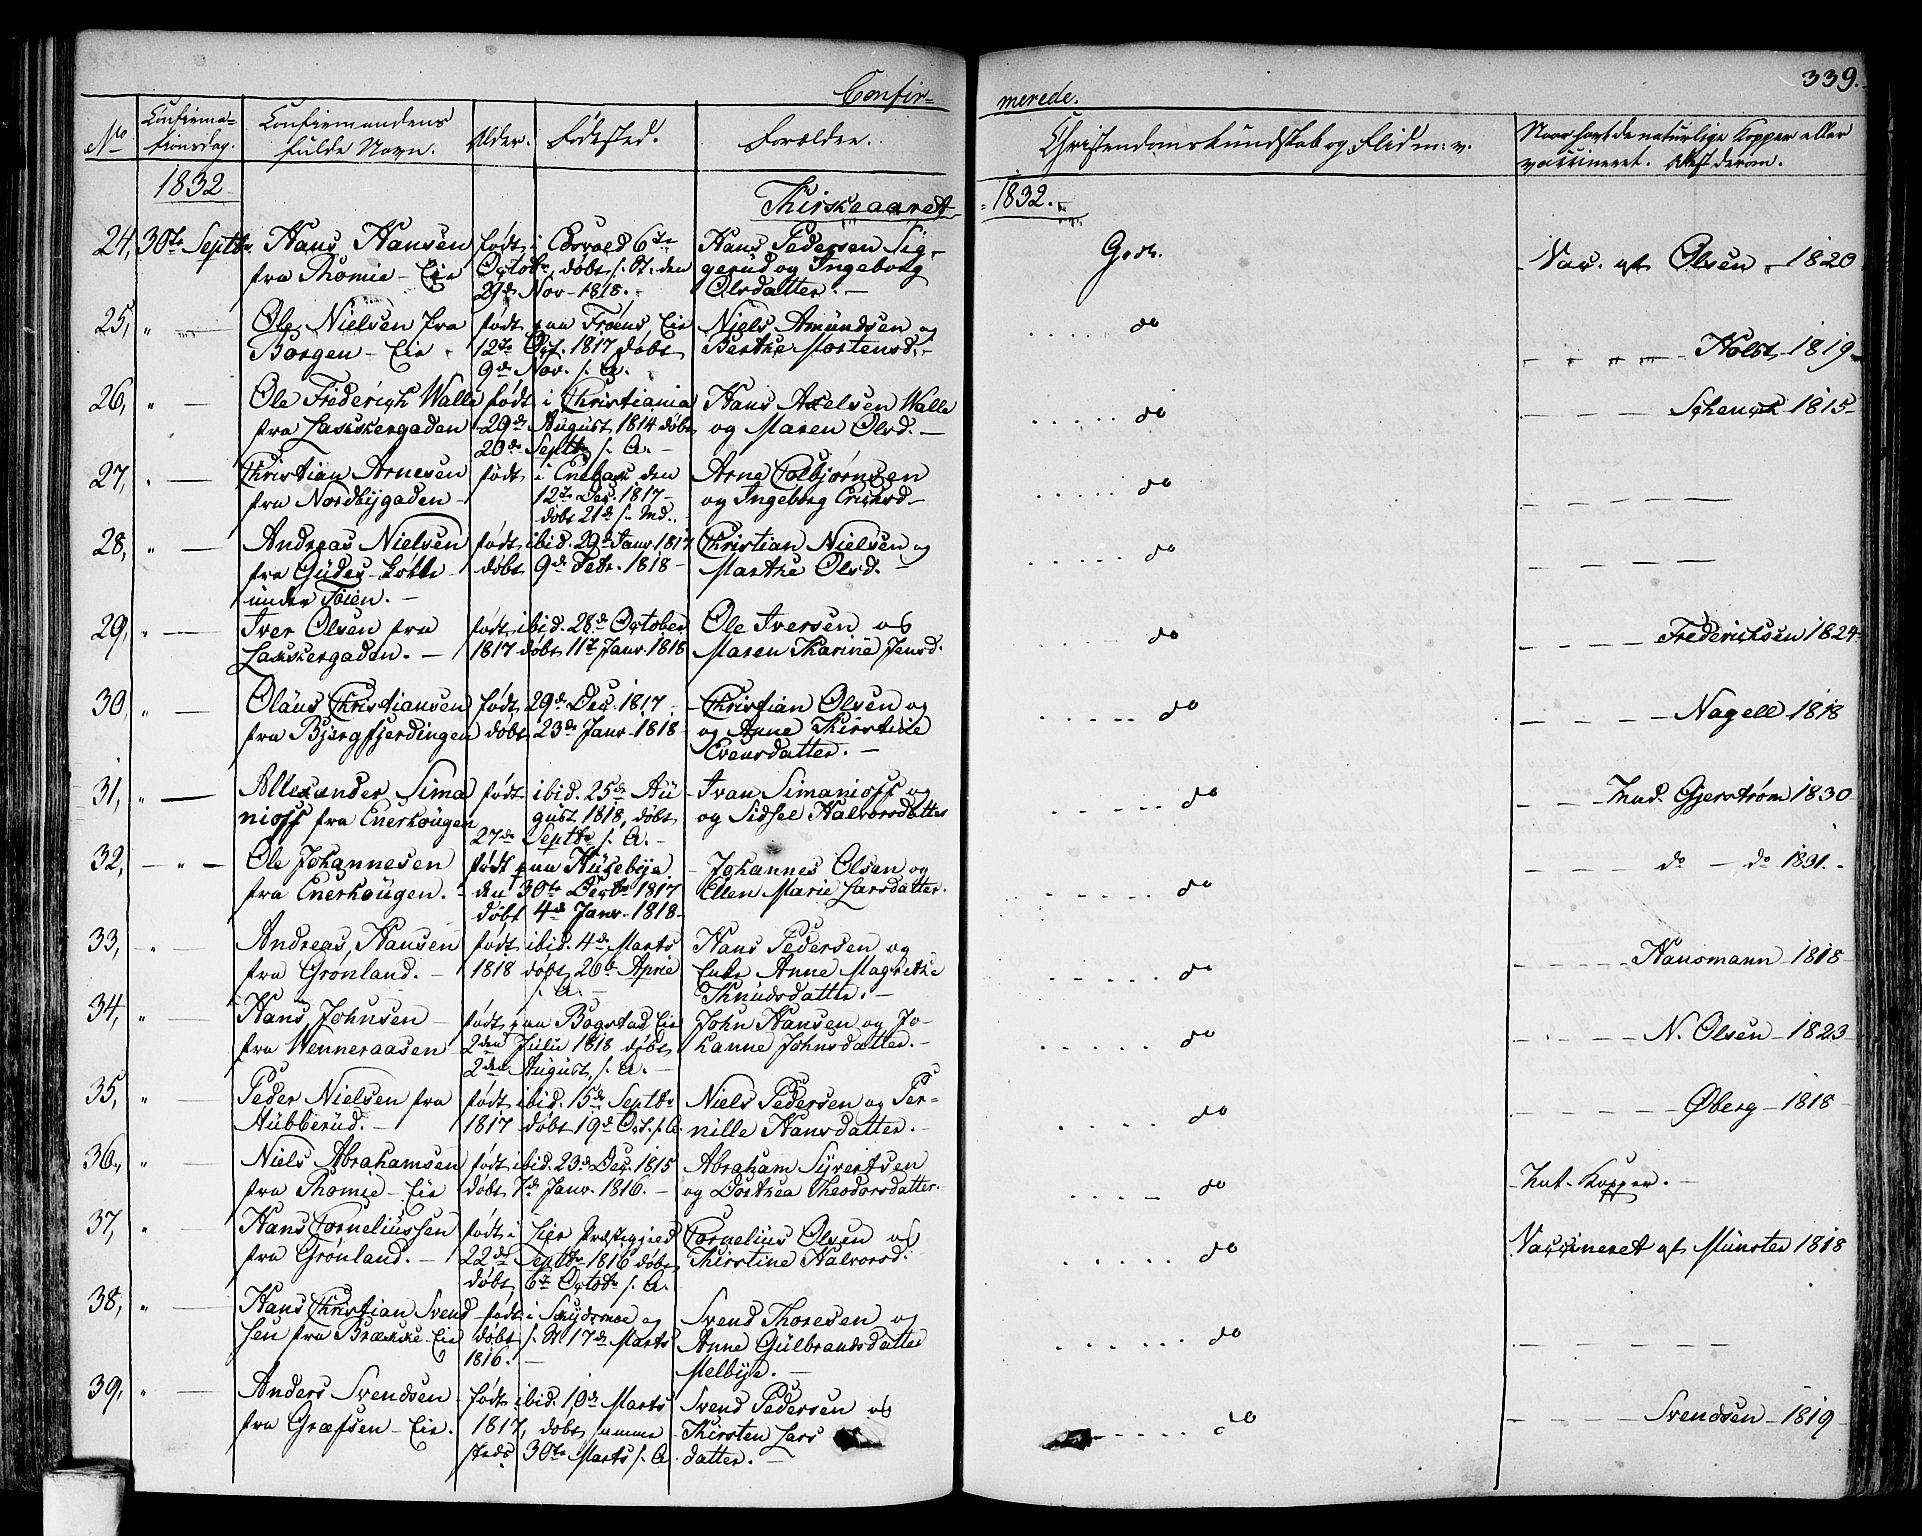 339.
Confir-
merede.
No
Confirma-
tionsdag.
Confirmandens
fulde Navn.
Alder.
Fødested.
Forældre.
Christendomskundskab og Flid m: v.
Naar havt de naturlige Kopper eller
vaccineret. Attest derom.
1832
Kirkeaaret
1832.
24, 30te Septbr Hans Hansen født i Edsvold 6te Hans Pedersen Sig- Godt. Vac. af Olsen - 1820
fra Thomie-Eie Octobr, døbt s. St. den gerud og Ingeborg
29de Nov-1818. Olsdatter.
25, " Ole Nielsen fra født paa Frøens Eie Niels Amundsen og do Holst 1819
Borgen-Eie 12te Oct. 1817 døbt Berthe Mortensd.
9de Nov. s. A.
26, " Ole Friderich Walle født i Christiania Hans Axelsen Walle do Schenck 1815
fra Lakkergaden 29de August 1814 døbt og Maren Olsd.
20de Septbr s. A.
27, " Christian Arnesen født i Enebak den Arne Colbjørnsen do
fra Nordbygaden 12te Dec. 1817 og Ingeborg Ericksd.
døbt 21de s. Md.
28, " Andreas Nielsen født ibid. 29de Janr 1817 Christian Nielsen og do
fra døbt 9de Febr. 1818 Marthe Olsd.
under Tøien.
29, " Iver Olsen fra født ibid. 28de October Ole Iversen og do Frederichsen 1824
Lakkergaden. 1817 døbt 11te Janr 1818 Maren Karine Jensd.
30 " Olaus Christiansen født 29de Dec. 1817 Christian Olsen og do Nagell 1818
fra Bjergfjerdingen døbt 23de Janr 1818 og Anne Kirstine
Evensdatter.
31, " Allexander Sima født ibid. 25de Au Ivan Simanioff og do Mad. Gjerstrøm 1830
nioff fra Enerhougen gust 1818, døbt og Sidsel Halvorsdatter
27de Septbr s. A.
32, " Ole Johannesen født paa Husebye Johannes Olsen og do do - do 1831.
fra Enerhougen. den 30te Decbr 1817 Ellen Marie Larsdatter.
døbt 4de Janr. 1818
33, " Andreas Hansen født ibid. 4de Marts Hans Pedersen og do Hansmann 1818
fra Grønland. 1818 døbt 26de April Enke Anne Magrethe
s. A. Knudsdatter.
34, " Hans Johnsen født paa Bogstad Eie John Hansen og Jo- do N. Olsen 1823
fra Wenneraasen 2den Julu 1818 døbt hanne Johnsdatter.
2den August, s. A.
35, " Peder Nielsen fra født ibid. 15de Septbr Niels Pedersen og Per- do Øberg 1818
Hubberud. 1817 døbt 19de Oct. s. A. nille Hansdatter.
36, " Niels Abrahamsen født ibid. 23de Dec. 1815 Abraham Syvertsen do Nat. Kopper.
fra Thomie-Eie døbt 7de Janr 1816. og Dorthea Theodorsdatter.
37, " Hans Corneliussen født i Lier Præstegjeld Cornelius Olsen og do Vaccineret af Münster 1818
fra Grønland. 22de Septbr 1816 døbt Kirstine Halvorsd.
døbt 6te Octobr s. A.
38, " Hans Christian Svend født i Skydsmoe og Svend Thoresen og do
sen fra Brække-Eie døbt s. St. 17de Marts Anne Gulbrandsdatter
1816. Melbye.
39, " Anders Svendsen født ibid. 10de Marts Svend Pedersen og do Svendsen 1819
fra Græfsen-Eie. 1817, døbt samme Kirsten Lars
steds 30te Marts s. A. datter.